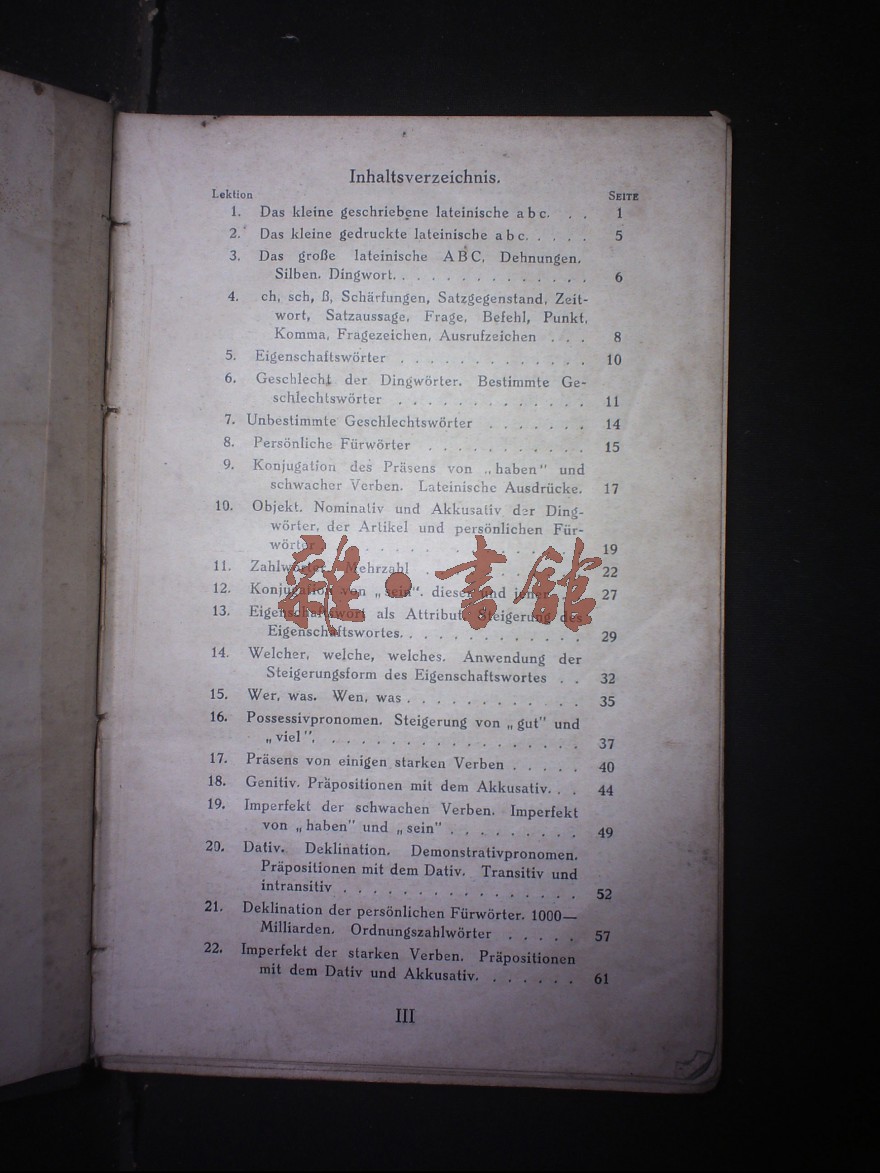 Inhaltsverzeichnis.
Lektion SEITE
1. Das kleine geschriebene lateinische abc. . . 1
2. Das kleine gedruckte lateinische abc. . . . . 5
3. Das große lateinische ABC, Dehnungen,
Silben. Dingwort. . . . . . . . . . . . . 6
4. ch, sch, ß, Schärfungen, Satzgegenstand, Zeit-
wort, Satzaussage, Frage, Befehl, Punkt,
Komma, Fragezeichen, Ausrufzeichen . . . 8
5. Eigenschaftswörter . . . . . . . . . . . . 10
6. Geschlecht der Dingwörter. Bestimmte Ge-
schlechtswörter . . . . . . . . . . . . 11
7. Unbestimmte Geschlechtswörter . . . . . . . 14
8. Persönliche Fürwörter . . . . . . . . . . . 15
9. Konjugation des Präsens von „haben" und
schwacher Verben. Lateinische Ausdrücke. 17
10. Objekt. Nominativ und Akkusativ der Ding-
wörter, der Artikel und persönlichen Für-
wörter . . . . . . . . . . . . . . 19
11. Zahlwörter. Mehrzahl . . . . . . . . . . 22
12. Konjugation von „sein". dieser und jener . . 27
13. Eigenschaftswort als Attribut. Steigerung des
Eigenschaftswortes. . . . . . . . . . . . 29
14. Welcher, welche, welches. Anwendung der
Steigerungsform des Eigenschaftswortes . . 32
15. Wer, was. Wen, was . . . . . . . . . . . . 35
16. Possessivpronomen. Steigerung von „gut" und
„viel". . . . . . . . . . . . . . . . . . 37
17. Präsens von einigen starken Verben . . . . . 40
18. Genitiv. Präpositionen mit dem Akkusativ. . . 44
19. Imperfekt der schwachen Verben. Imperfekt
von „haben" und „sein" . . . . . . . . . 49
20. Dativ. Deklination. Demonstrativpronomen.
Präpositionen mit dem Dativ. Transitiv und
intransitiv . . . . . . . . . . . . . . . . 52
21. Deklination der persönlichen Fürwörter. 1000—
Milliarden. Ordnungszahlwörter . . . . . 57
22. Imperfekt der starken Verben. Präpositionen
mit dem Dativ und Akkusativ. . . . . . . 61
III
雜·書館